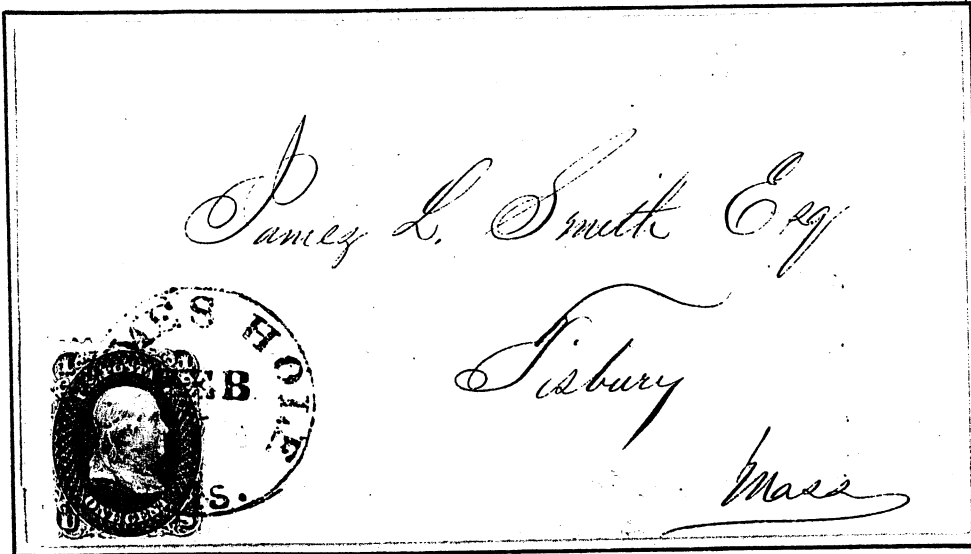 James L. Smith Esq
Tisbury
Mass
MES HOLE
EB
S.
U.S. POSTAGE
1 1
ONE CENT
U S